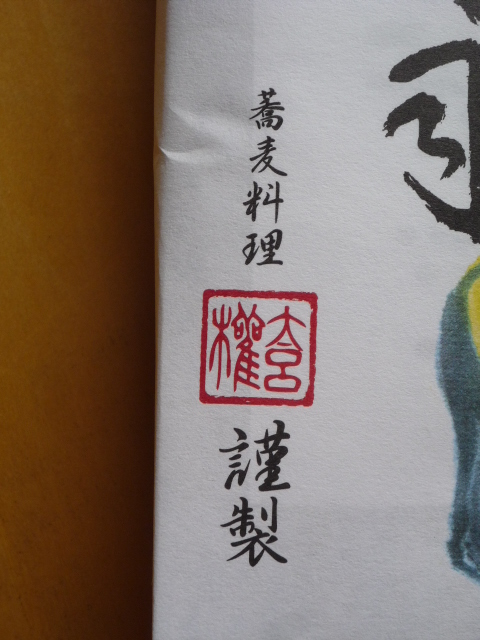 蕎麦料理
權
謹製